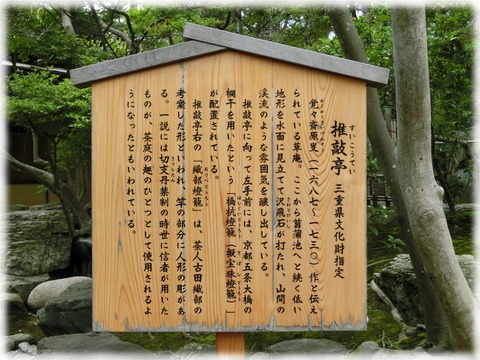 すいこうてい
推敲亭 三重県文化財指定
覚々斎原叟(一六八七~一七三〇)作と伝え
られている草庵。ここから菖蒲池へと続く低い
地形を水面に見立てて沢飛石が打たれ、山間の
渓流のような雰囲気を醸し出している。
推敲亭に向って左手前には、京都五条大橋の
欄干を用いたという「橋杭燈籠(擬宝珠燈籠)」
が配置されている。
推敲亭右の「織部燈籠」は、茶人古田織部の
考案した形といわれ、竿の部分に人形の彫があ
る。一説には切支丹禁制の時世に信者が用いた
ものが、茶庭の趣のひとつとして使用されるよ
うになったともいわれている。